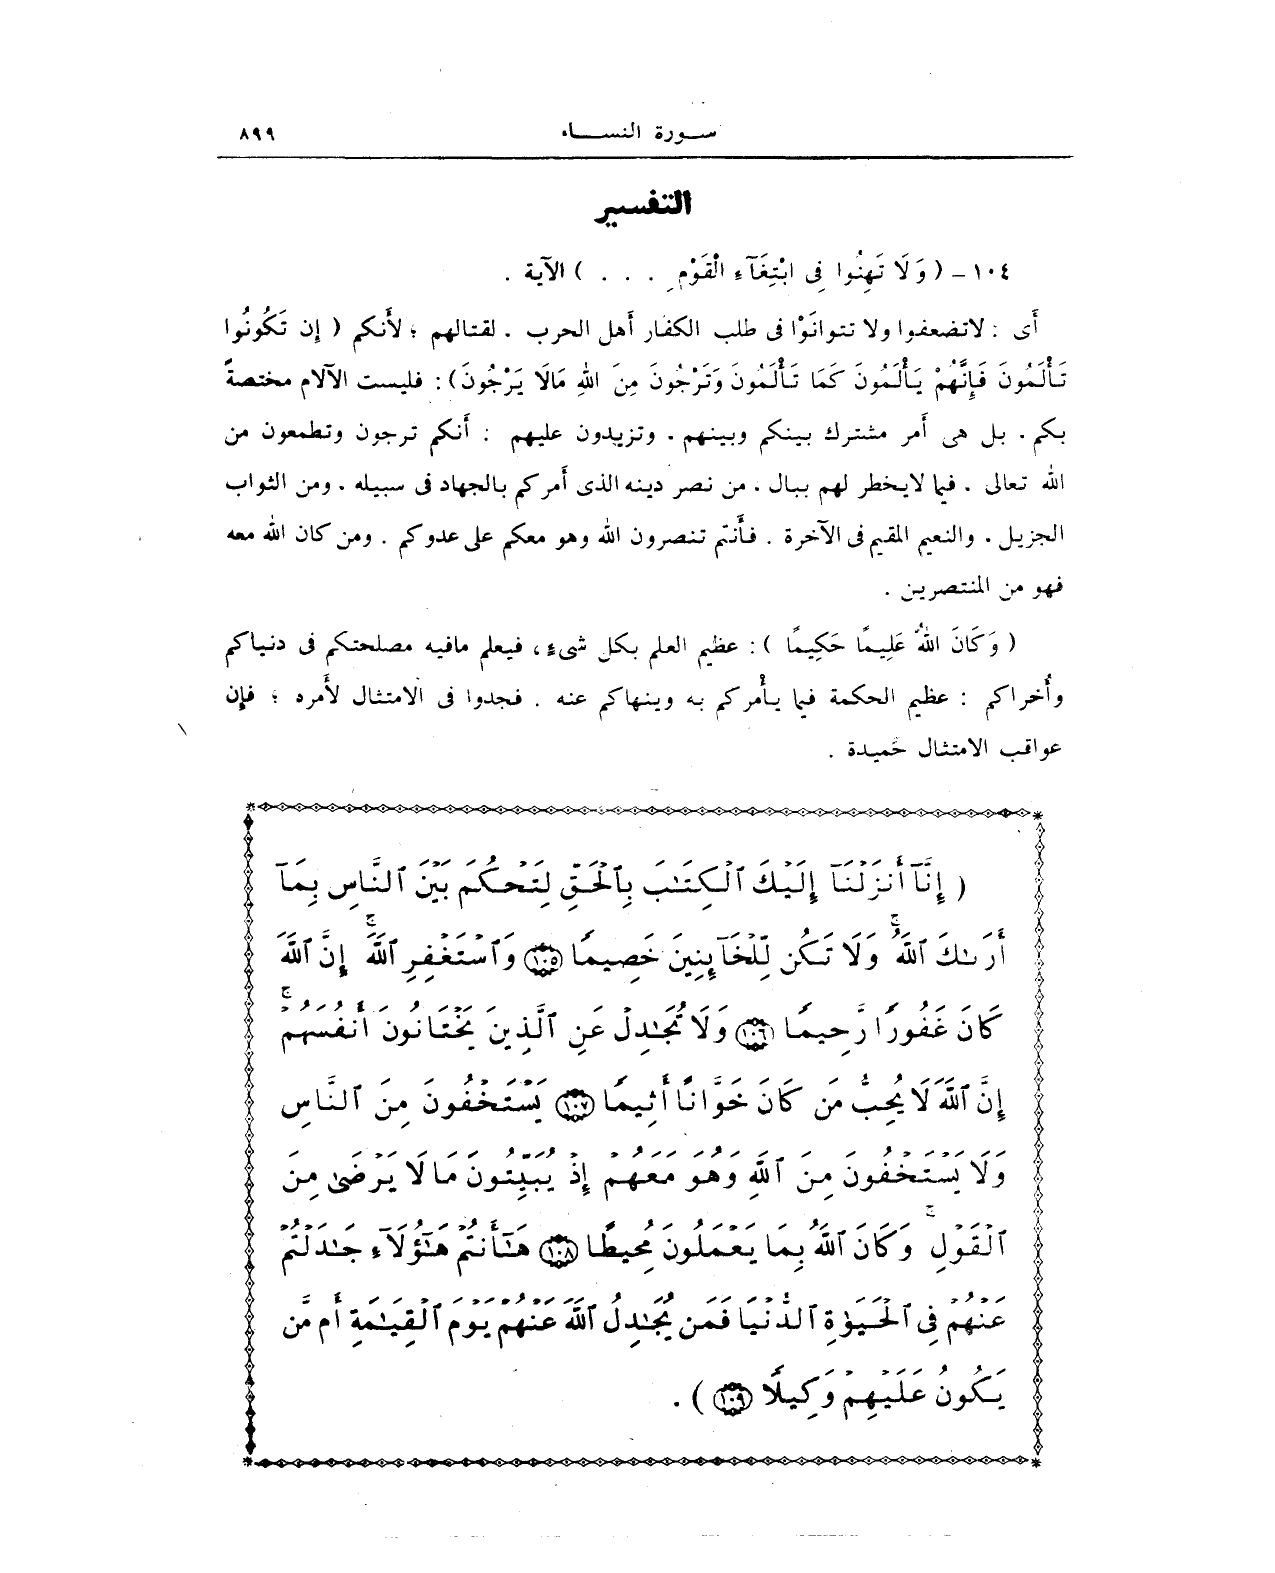 سورة النساء ٨٩٩
التفسير
١٠٤ - ( وَلَا تَهِنُوا فِى ابْتِغَآءِ الْقَوْمِ . . . ) الآية .
أَى : لاتضعفوا ولا تتوانَوْا فى طلب الكفار أهل الحرب . لقتالهم ؛ لأَنكم ( إِن تَكُونُوا
تَأْلَمُونَ فَإِنَّهُمْ يَأْلَمُونَ كَمَا تَأْلَمُونَ وَتَرْجُونَ مِنَ اللهِ مَالَا يَرْجُونَ ) : فليست الآلام مختصةً
بكم . بل هى أَمر مشترك بينكم وبينهم . وتزيدون عليهم : أَنكم ترجون وتطمعون من
الله تعالى . فيما لايخطر لهم ببال . من نصر دينه الذى أَمركم بالجهاد فى سبيله . ومن الثواب
الجزيل . والنعيم المقيم فى الآخرة . فأَنتم تنصرون الله وهو معكم على عدوكم . ومن كان الله معه
فهو من المنتصرين .
( وَكَانَ اللهُ عَلِيمًا حَكِيمًا ) : عظيم العلم بكل شىءٍ ، فيعلم مافيه مصلحتكم فى دنياكم
وأُخراكم : عظيم الحكمة فيما يأْمركم به وينهاكم عنه . فجدوا فى الامتثال لأَمره ؛ فإِن
عواقب الامتثال حَميدة .
( إِنَّآ أَنزَلْنَآ إِلَيْكَ ٱلْكِتَٰبَ بِٱلْحَقِّ لِتَحْكُمَ بَيْنَ ٱلنَّاسِ بِمَآ
أَرَىٰكَ ٱللَّهُ ۚ وَلَا تَكُن لِّلْخَآئِنِينَ خَصِيمًا ١٠٥ وَٱسْتَغْفِرِ ٱللَّهَ ۖ إِنَّ ٱللَّهَ
كَانَ غَفُورًا رَّحِيمًا ١٠٦ وَلَا تُجَٰدِلْ عَنِ ٱلَّذِينَ يَخْتَانُونَ أَنفُسَهُمْ ۚ
إِنَّ ٱللَّهَ لَا يُحِبُّ مَن كَانَ خَوَّانًا أَثِيمًا ١٠٧ يَسْتَخْفُونَ مِنَ ٱلنَّاسِ
وَلَا يَسْتَخْفُونَ مِنَ ٱللَّهِ وَهُوَ مَعَهُمْ إِذْ يُبَيِّتُونَ مَا لَا يَرْضَىٰ مِنَ
ٱلْقَوْلِ ۚ وَكَانَ ٱللَّهُ بِمَا يَعْمَلُونَ مُحِيطًا ١٠٨ هَٰٓأَنتُمْ هَٰٓؤُلَآءِ جَٰدَلْتُمْ
عَنْهُمْ فِى ٱلْحَيَوٰةِ ٱلدُّنْيَا فَمَن يُجَٰدِلُ ٱللَّهَ عَنْهُمْ يَوْمَ ٱلْقِيَٰمَةِ أَم مَّن
يَكُونُ عَلَيْهِمْ وَكِيلًا ١٠٩ ) .